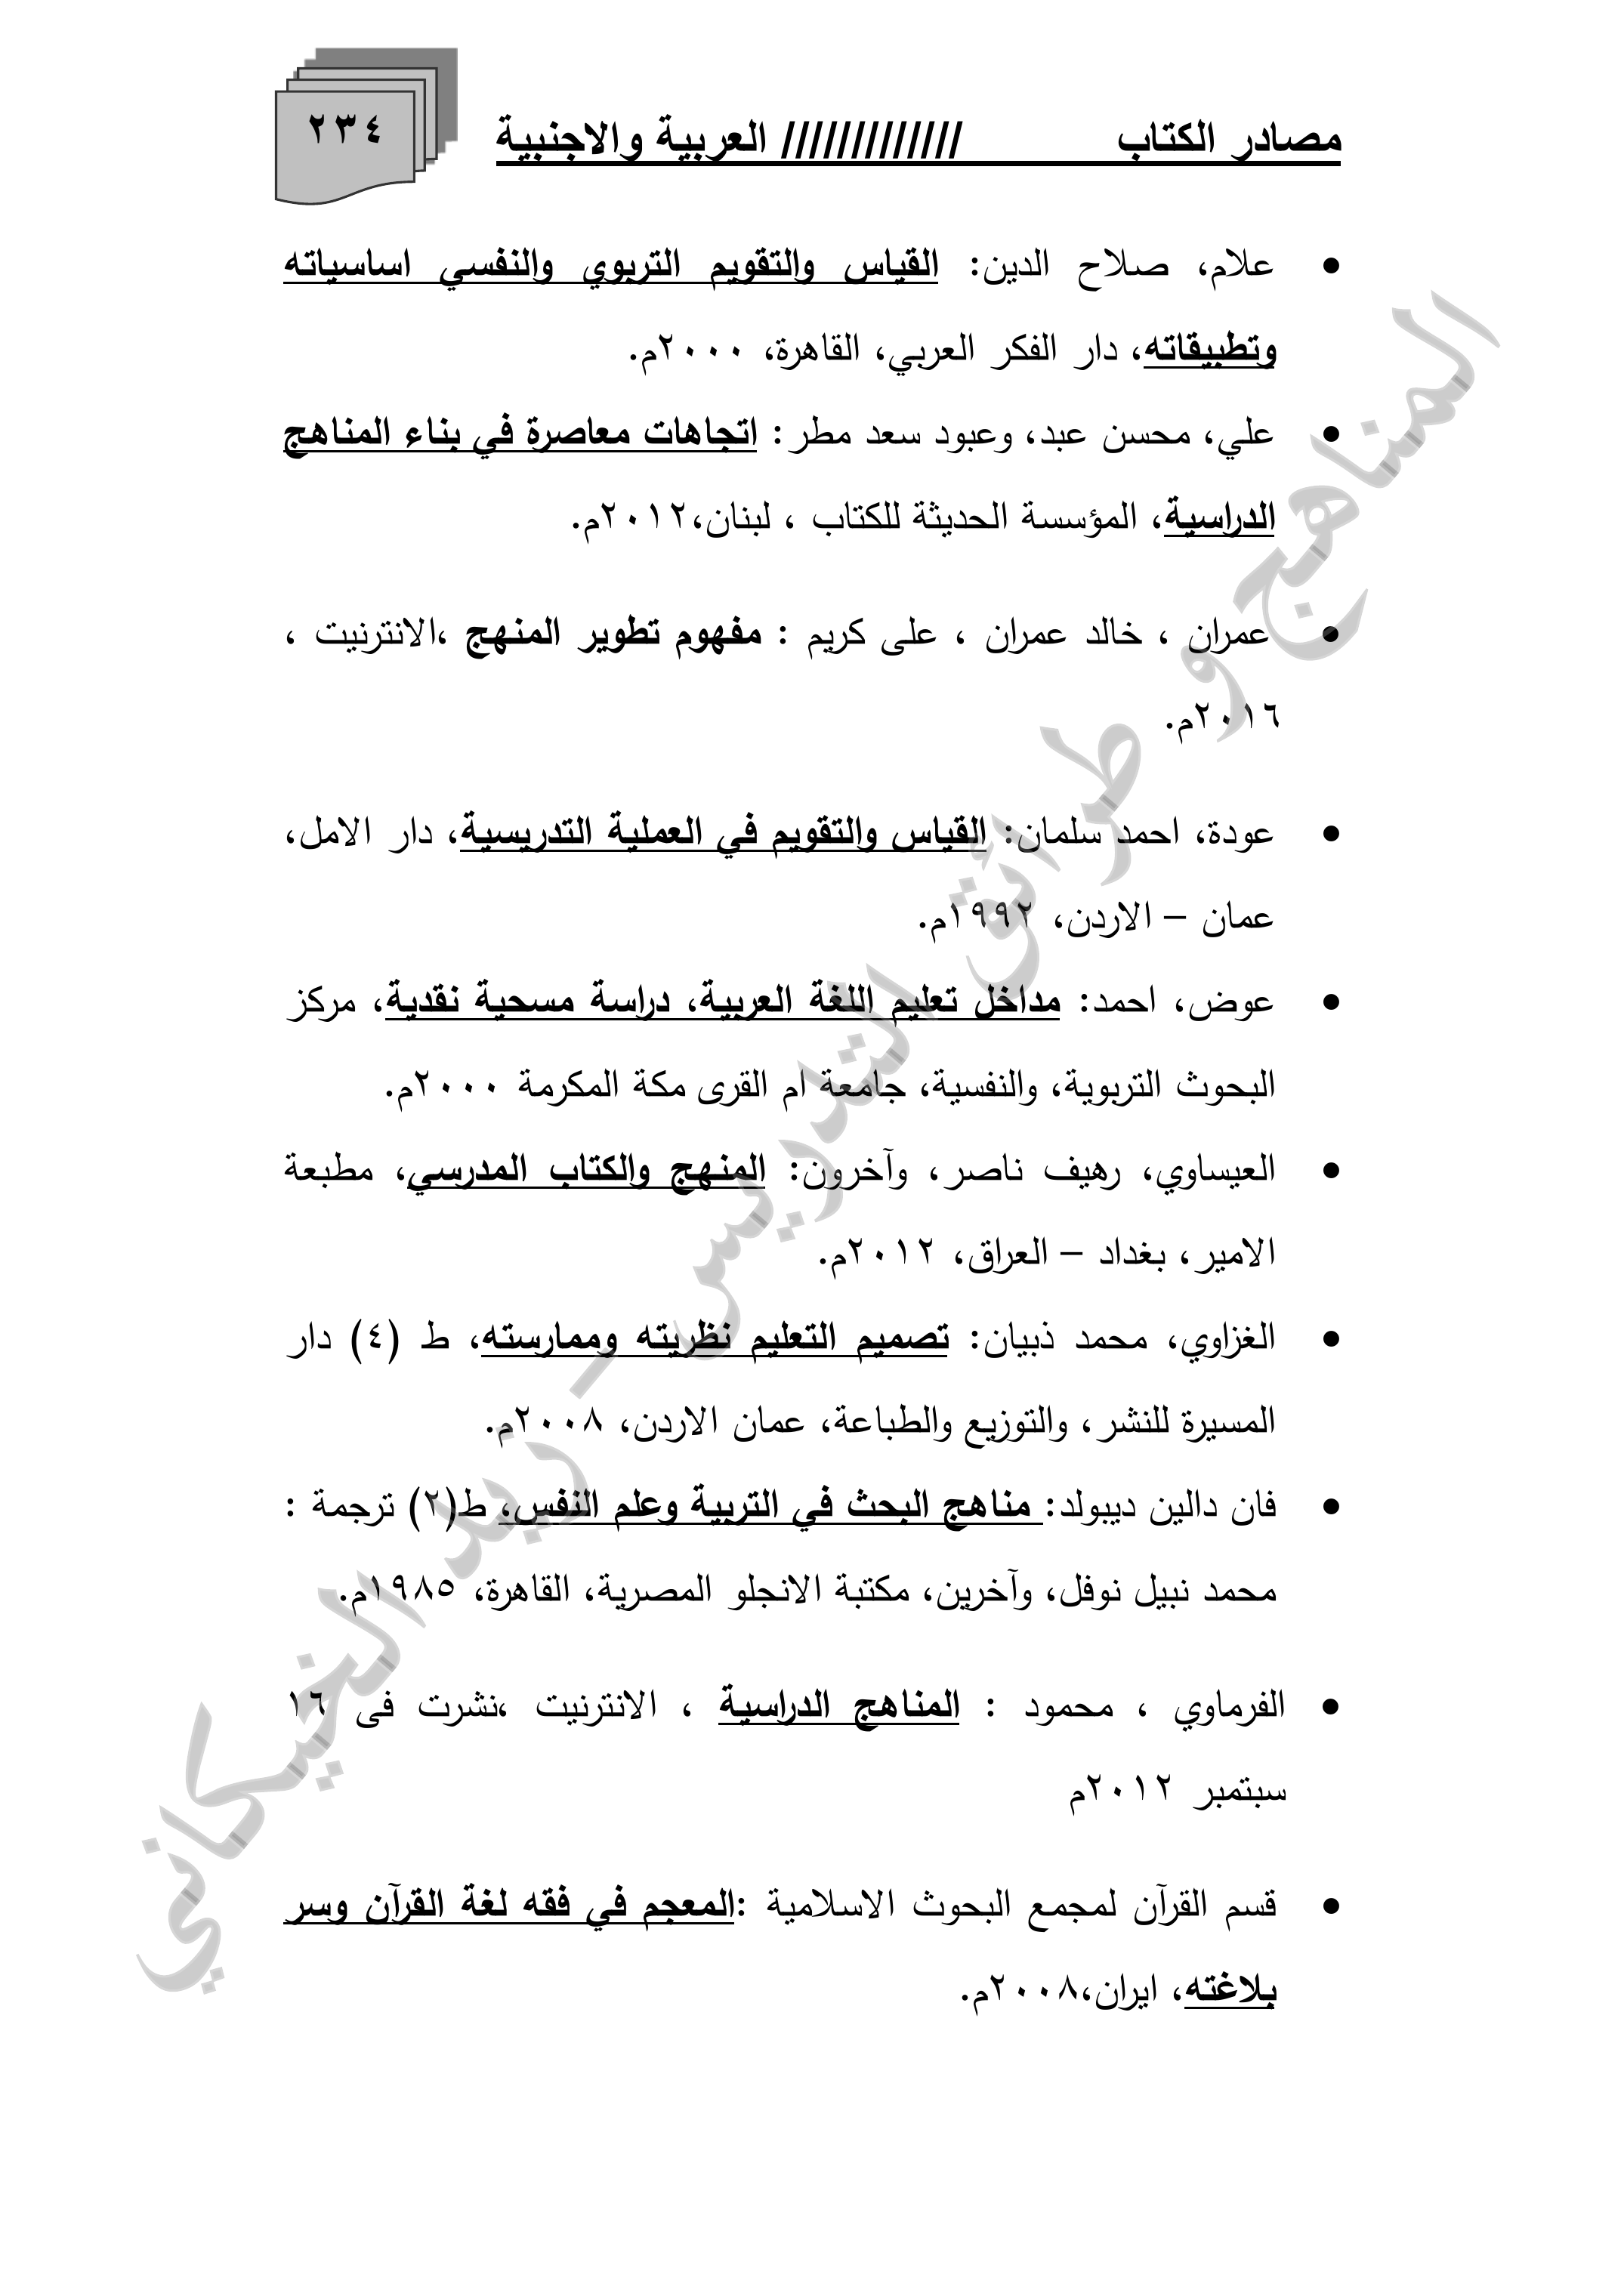 مصادر الكتاب ///////////// العربية والاجنبية
٢٣٤
• علام، صلاح الدين: القياس والتقويم التربوي والنفسي اساسياته
وتطبيقاته، دار الفكر العربي، القاهرة، ٢٠٠٠م.
• علي، محسن عبد، وعبود سعد مطر: اتجاهات معاصرة في بناء المناهج
الدراسية، المؤسسة الحديثة للكتاب ، لبنان،٢٠١٢م.
• عمران ، خالد عمران ، على كريم : مفهوم تطوير المنهج ،الانترنيت ،
٢٠١٦م.
• عودة، احمد سلمان: القياس والتقويم في العملية التدريسية، دار الامل،
عمان – الاردن، ١٩٩٢م.
• عوض، احمد: مداخل تعليم اللغة العربية، دراسة مسحية نقدية، مركز
البحوث التربوية، والنفسية، جامعة ام القرى مكة المكرمة ٢٠٠٠م.
• العيساوي، رهيف ناصر، وآخرون: المنهج والكتاب المدرسي، مطبعة
الامير، بغداد – العراق، ٢٠١٢م.
• الغزاوي، محمد ذبيان: تصميم التعليم نظريته وممارسته، ط (٤) دار
المسيرة للنشر، والتوزيع والطباعة، عمان الاردن، ٢٠٠٨م.
• فان دالين ديبولد: مناهج البحث في التربية وعلم النفس، ط(٢) ترجمة :
محمد نبيل نوفل، وآخرين، مكتبة الانجلو المصرية، القاهرة، ١٩٨٥م.
• الفرماوي ، محمود : المناهج الدراسية ، الانترنيت ،نشرت فى ١٦
سبتمبر ٢٠١٢م
• قسم القرآن لمجمع البحوث الاسلامية :المعجم في فقه لغة القرآن وسر
بلاغته، ايران،٢٠٠٨م.
المناهج و طرائق التدريس – زيد الخيكاني